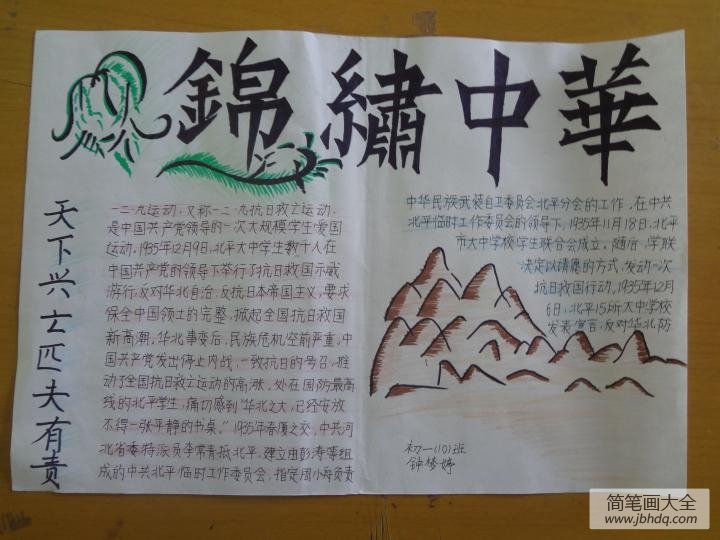 錦繡中華
天下兴亡匹夫有责
一二·九运动，又称一二·九抗日救亡运动，
是中国共产党领导的一次大规模学生爱国
运动。1935年12月9日，北平大中学生数千人在
中国共产党的领导下举行了抗日救国示威
游行，反对华北自治，反抗日本帝国主义，要求
保全中国领土的完整，掀起全国抗日救国
新高潮。华北事变后，民族危机空前严重，中
国共产党发出停止内战，一致抗日的号召，推
动了全国抗日救亡运动的高涨。处在国防最高
线的北平学生，痛切感到“华北之大，已经安放
不得一张平静的书桌。”1935年春夏之交，中共河
北省委特派员李常青抵北平，建立由彭涛等组
成的中共北平临时工作委员会，指定周小舟负责
中华民族武装自卫委员会北平分会的工作。在中共
北平临时工作委员会的领导下，1935年11月18日，北平
市大中学校学生联合会成立。随后，学联
决定以请愿的方式，发动一次
抗日救国行动。1935年12月
6日，北平15所大中学校
发表宣言，反对华北防
初一(10)班
钟梦婷
简笔画大全
www.jbhdq.com